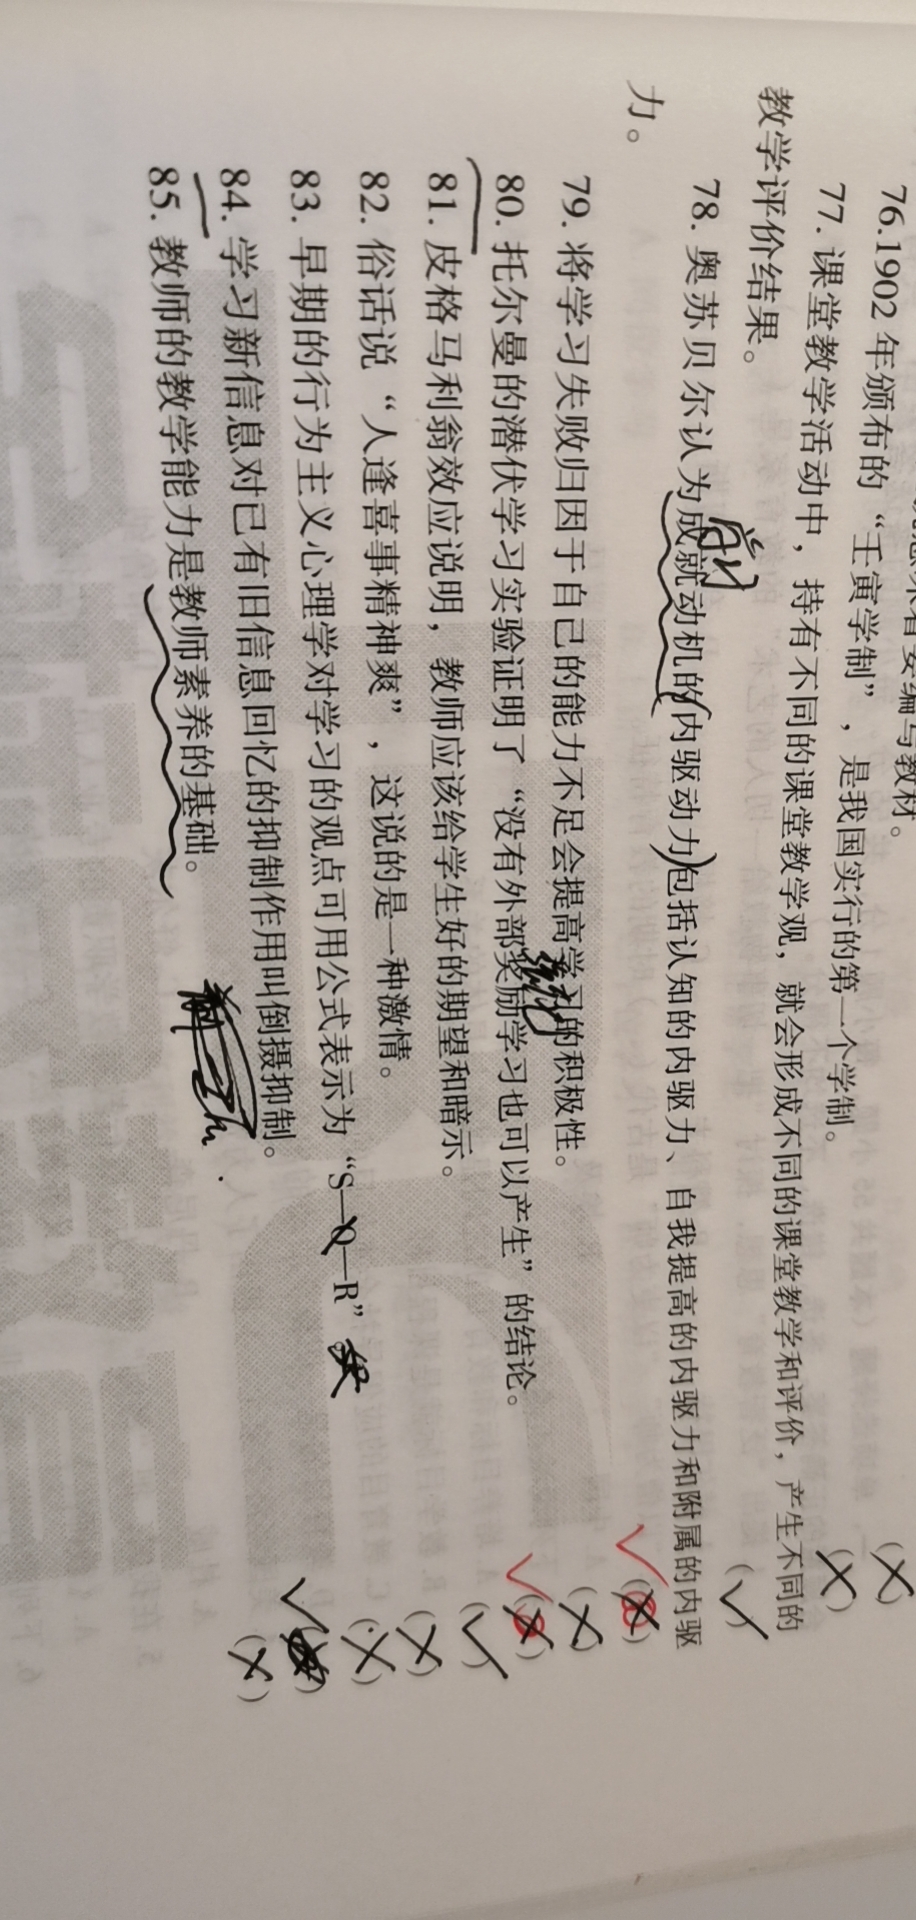 着安编与教材。
76.1902年颁布的“壬寅学制”，是我国实行的第一个学制。 (×)
77. 课堂教学活动中，持有不同的课堂教学观，就会形成不同的课堂教学和评价，产生不同的
教学评价结果。 (√)
78. 奥苏贝尔认为成就动机的内驱动力包括认知的内驱力、自我提高的内驱力和附属的内驱
力。 (×) √
79. 将学习失败归因于自己的能力不足会提高学习的积极性。 (×)
80. 托尔曼的潜伏学习实验证明了“没有外部奖励学习也可以产生”的结论。 (×) √
81. 皮格马利翁效应说明，教师应该给学生好的期望和暗示。 (√)
82. 俗话说“人逢喜事精神爽”，这说的是一种激情。 (×)
83. 早期的行为主义心理学对学习的观点可用公式表示为“S—O—R”。 (×)
84. 学习新信息对已有旧信息回忆的抑制作用叫倒摄抑制。 √
85. 教师的教学能力是教师素养的基础。 (×)